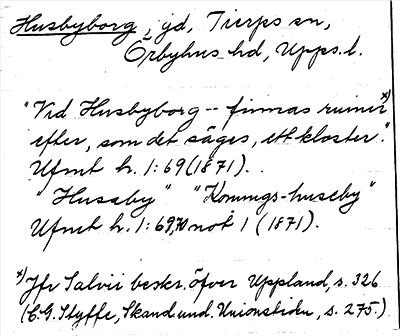 Husbyborg, gd, Tierps sn,
Örbyhus hd, Upps. l.
"Vid Husbyborg -- finnas ruiner x)
efter, som det säges, ett kloster."
Ufmt h. 1:69 (1871).
"Huseby" "Konungs-huseby"
Ufmt h. 1:69,70 not 1 (1871).
x) Jfr Salvii beskr. öfver Uppland, s. 326
(C.G. Styffe, Skand. und. Unionstiden, s. 275.)